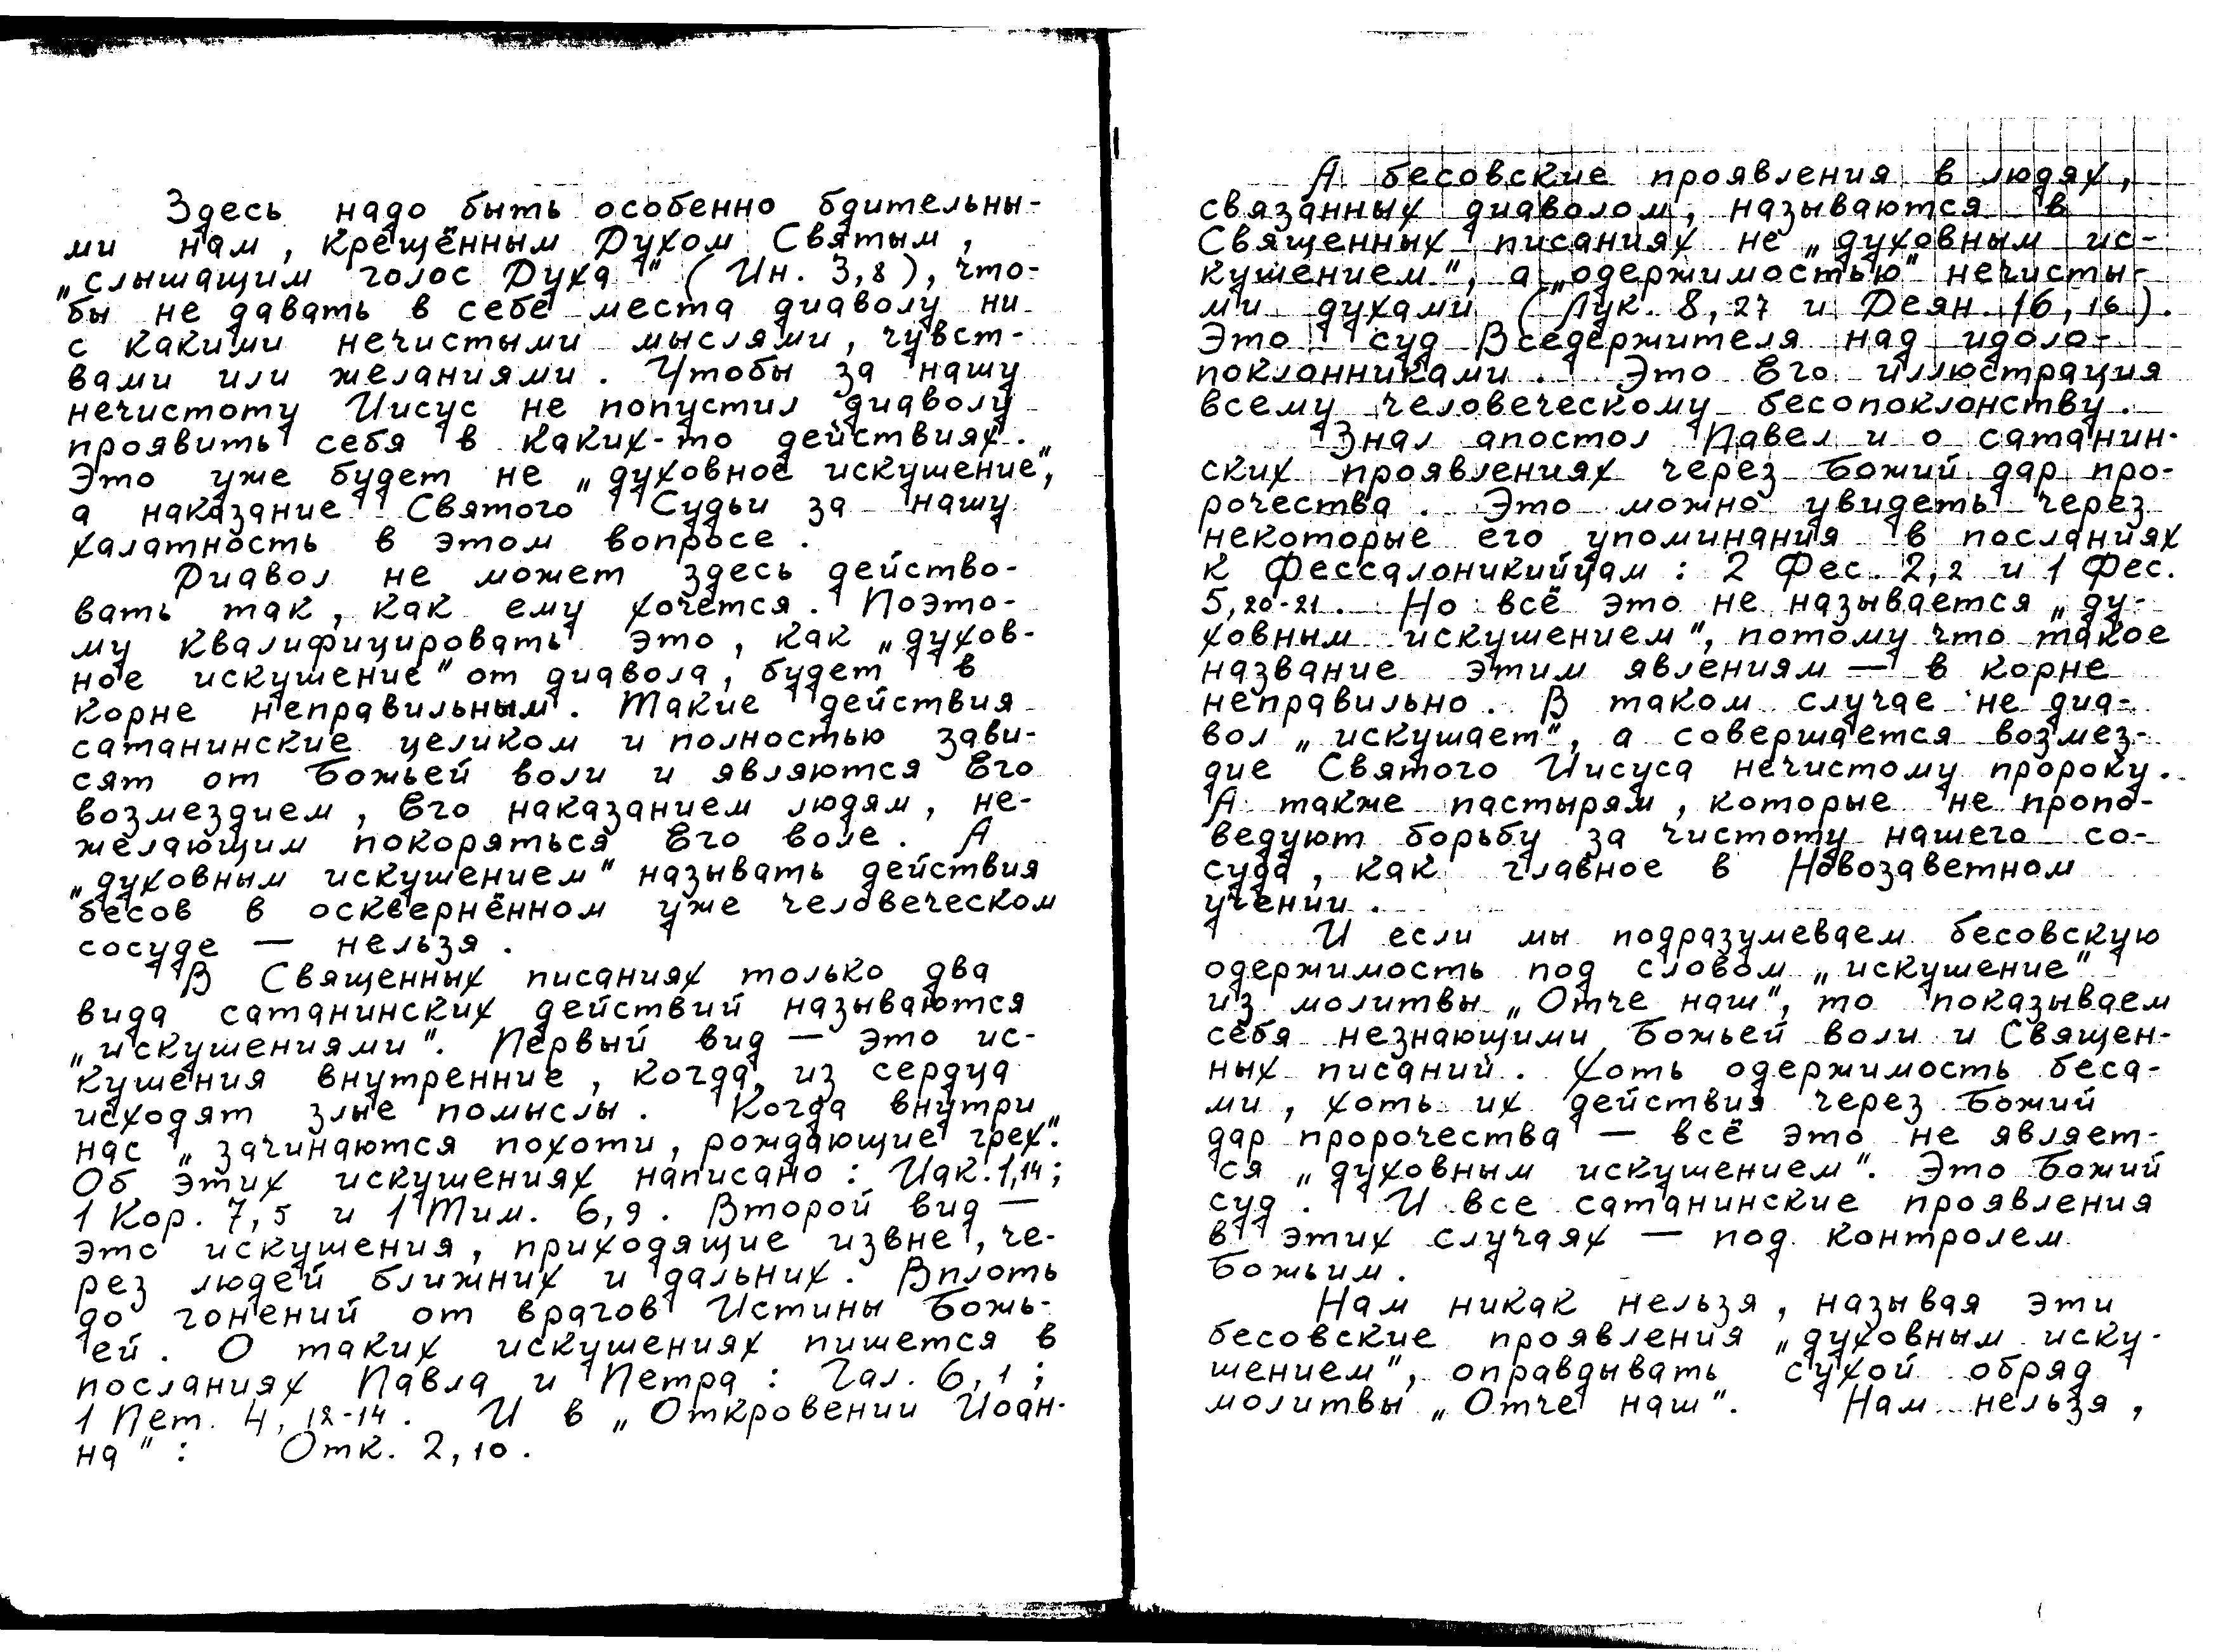 Здесь надо быть особенно бдительны-
ми нам, крещённым Духом Святым,
„слышащим голос Духа" (Ин. 3,8), что-
бы не давать в себе места диаволу ни
с какими нечистыми мыслями, чувст-
вами или желаниями. Чтобы за нашу
нечистоту Иисус не попустил диаволу
проявить себя в каких-то действиях.
Это уже будет не „духовное искушение",
а наказание Святого Судьи за нашу
халатность в этом вопросе.
Диавол не может здесь действо-
вать так, как ему хочется. Поэто-
му квалифицировать это, как „духов-
ное искушение" от диавола, будет в
корне неправильным. Такие действия
сатанинские целиком и полностью зави-
сят от Божьей воли и являются Его
возмездием, Его наказанием людям, не-
желающим покоряться Его воле. А
„духовным искушением" называть действия
бесов в осквернённом уже человеческом
сосуде — нельзя.
В Священных писаниях только два
вида сатанинских действий называются
„искушениями". Первый вид — это ис-
кушения внутренние, когда, из сердца
исходят злые помыслы. Когда внутри
нас „зачинаются похоти, рождающие грех".
Об этих искушениях написано: Иак. 1,14;
1 Кор. 7,5 и 1 Тим. 6,9. Второй вид —
это искушения, приходящие извне, че-
рез людей ближних и дальних. Вплоть
до гонений от врагов Истины Божь-
ей. О таких искушениях пишется в
посланиях Павла и Петра: Гал. 6,1;
1 Пет. 4, 12-14. И в „Откровении Иоан-
на": Отк. 2,10.
А бесовские проявления в людях,
связанных диаволом, называются в
Священных писаниях не „духовным ис-
кушением", а „одержимостью" нечисты-
ми духами (Лук. 8,27 и Деян. 16,16).
Это суд Вседержителя над идоло-
поклонниками. Это Его иллюстрация
всему человеческому бесопоклонству.
Знал апостол Павел и о сатанин-
ских проявлениях через Божий дар про-
рочества. Это можно увидеть через
некоторые его упоминания в посланиях
к Фессалоникийцам: 2 Фес. 2,2 и 1 Фес.
5,20-21. Но всё это не называется „ду-
ховным искушением", потому что такое
название этим явлениям — в корне
неправильно. В таком случае не диа-
вол „искушает", а совершается возмез-
дие Святого Иисуса нечистому пророку.
А также пастырям, которые не пропо-
ведуют борьбу за чистоту нашего со-
суда, как главное в Новозаветном
учении.
И если мы подразумеваем бесовскую
одержимость под словом „искушение"
из молитвы „Отче наш", то показываем
себя незнающими Божьей воли и Священ-
ных писаний. Хоть одержимость беса-
ми, хоть их действия через Божий
дар пророчества — всё это не являет-
ся „духовным искушением". Это Божий
суд. И все сатанинские проявления
в этих случаях — под контролем
Божьим.
Нам никак нельзя, называя эти
бесовские проявления „духовным иску-
шением", оправдывать сухой обряд
молитвы „Отче наш". Нам нельзя,